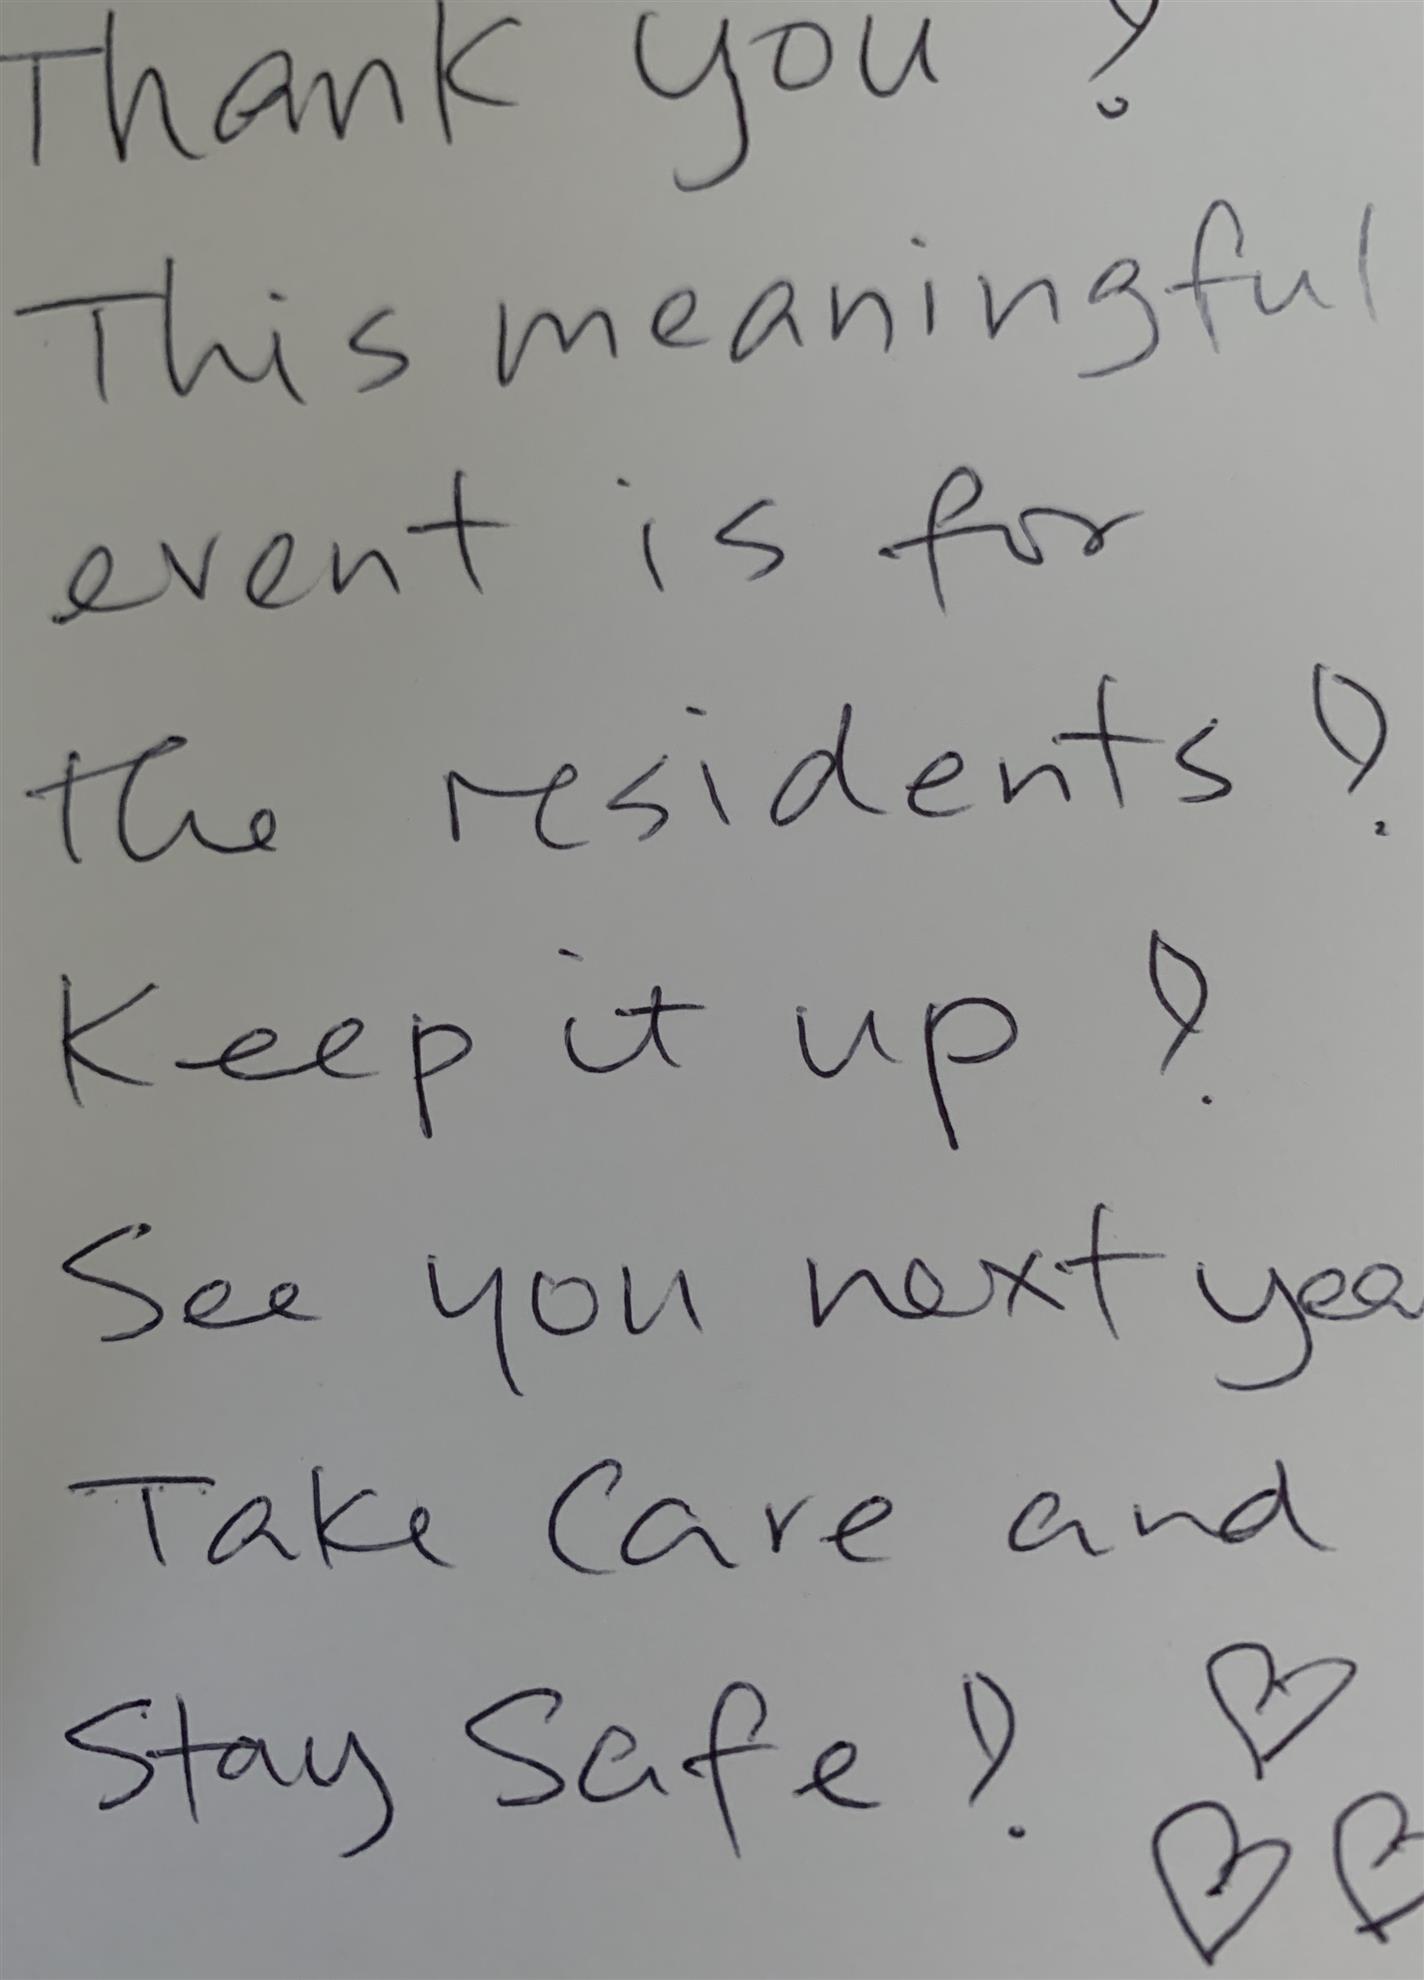 Thank you!
This meaningful
event is for
the residents!
Keep it up!
See you next yea
Take Care and
Stay Safe!